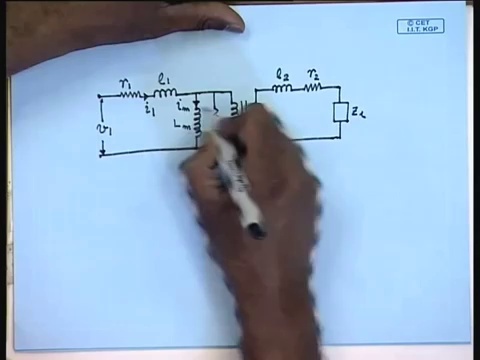 © CET
I.I.T. KGP
r₁ l₁ l₂ r₂
i₁ iₘ
v₁ Lₘ Z_L